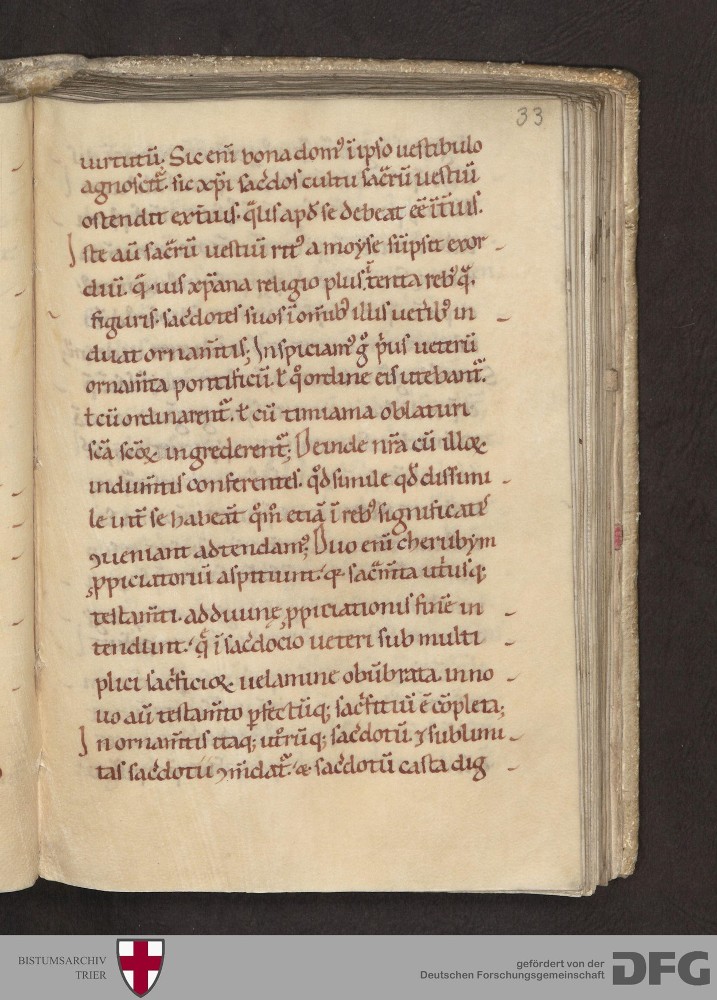 33
uirtutū. Sic eni̅ bona domꝰ i̅ ipso uestibulo
agnoscit᷑. sic xp̅i sac̅dos cultu sac̅rū uestiū
ostendit ext̅ius. q̅lis apđ se debeat ēē i̅t̅ius.
Iste aū sac̅rū uestiū rit᷒ a moyse sūpsit exor
diū. q̅uis xp̅ana religio plus t̅tenta rebꝰ q̅
figuris. sac̅dotes suos i̅ om̅ibꝰ illis uet̅ibꝰ in
duat ornam̅tis; Inspiciamꝰ g̊ p̅us ueterū
ornam̅ta pontificū. ł qͦ ordine eis utebant᷑.
ł cū ordinarent᷑. ł cū timiama oblaturi
sc̅a sc̅oꝝ ingrederent᷑; Deinde nr̅a cū illoꝝ
indum̅tis conferentes. qđ simile qđ dissimi
le int̅ se habeat̅ qm̅ etiā i̅ rebꝰ significatis
ꝯueniant adtendamꝰ; Duo eni̅ cherubym
ꝓpiciatoriū aspitiunt. q̅ sac̅m̅ta ut̅usq;
testam̅ti. ad diuinę ꝓpiciationis fine̅ in
tendunt. q̅ i̅ sac̅docio ueteri sub multi
plici sac̅ficioꝝ uelamine obūbrata. in no
uo aū testam̅to ꝑfectūq; sac̅fitiū ē cōpleta;
In ornam̅tis itaq; ut̅rūq; sac̅dotū. ⁊ sublimi
tas sac̅dotū ꝯm̅dat᷑. & sac̅dotū casta dig
BISTUMSARCHIV
TRIER
gefördert von der
Deutschen Forschungsgemeinschaft
DFG